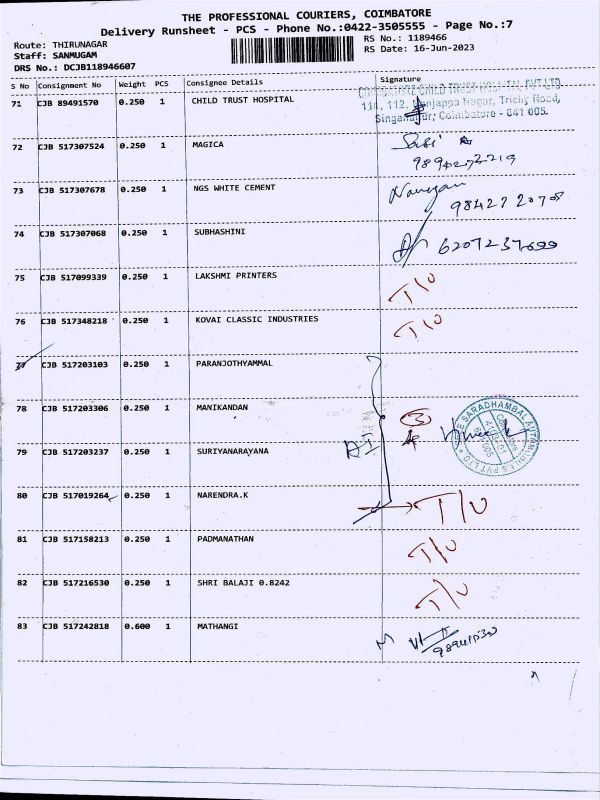 THE PROFESSIONAL COURIERS, COIMBATORE
Delivery Runsheet - PCS - Phone No.:0422-3505555 - Page No.:7
Route: THIRUNAGAR
Staff: SANMUGAM
DRS No.: DCJB118946607
RS No.: 1189466
RS Date: 16-Jun-2023
S No Consignment No Weight PCS Consignee Details Signature
71 CJB 89491570 0.250 1 CHILD TRUST HOSPITAL
COIMBATORE CHILD TRUST HOSPITAL PVT LTD
111, 112, Nanjappa Nagar, Trichy Road,
Singanallur, Coimbatore - 641 005.
72 CJB 517307524 0.250 1 MAGICA Sasi
9894272219
73 CJB 517307678 0.250 1 NGS WHITE CEMENT Narayan
98427 20708
74 CJB 517307068 0.250 1 SUBHASHINI 6207237699
75 CJB 517099339 0.250 1 LAKSHMI PRINTERS T/U
76 CJB 517348218 0.250 1 KOVAI CLASSIC INDUSTRIES T/U
77 CJB 517203103 0.250 1 PARANJOTHYAMMAL
78 CJB 517203306 0.250 1 MANIKANDAN 3
79 CJB 517203237 0.250 1 SURIYANARAYANA
80 CJB 517019264 0.250 1 NARENDRA.K T/U
81 CJB 517158213 0.250 1 PADMANATHAN T/U
82 CJB 517216530 0.250 1 SHRI BALAJI 0.8242 T/U
83 CJB 517242818 0.600 1 MATHANGI